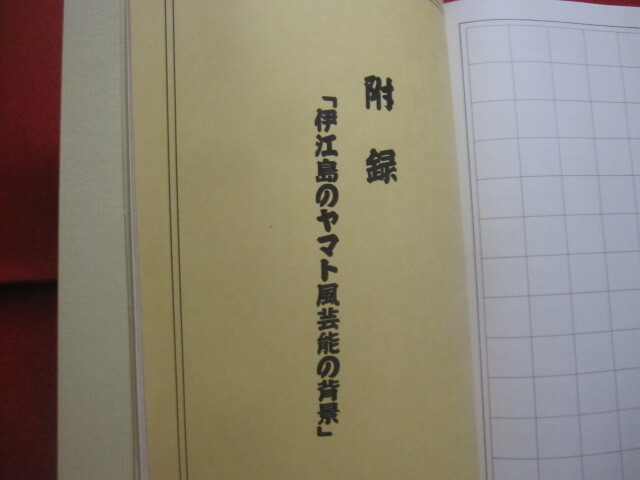 附録
「伊江島のヤマト風芸能の背景」